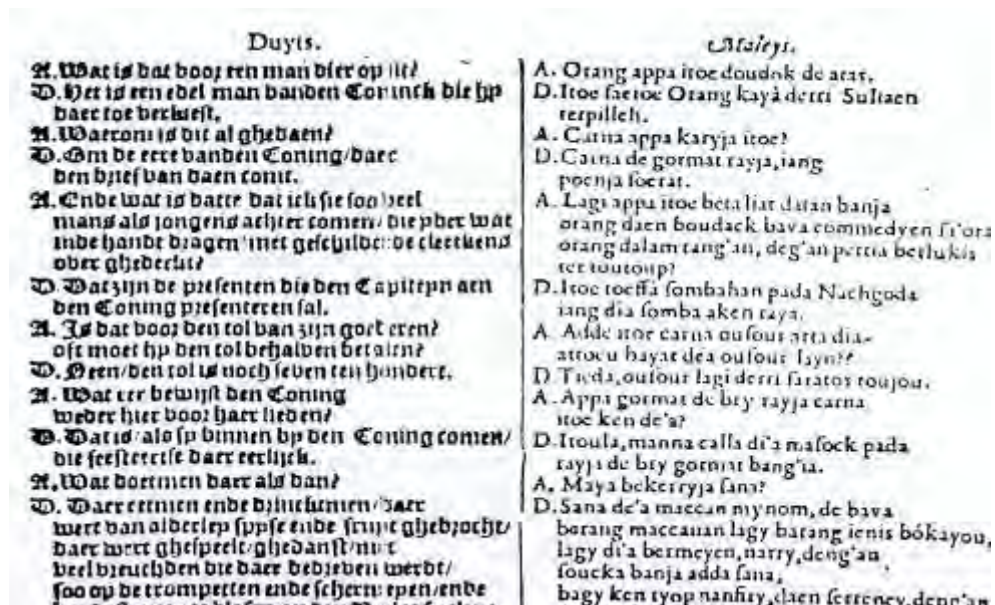 Duyts.
A. Wat is dat voor een man dier op sit?
D. Het is een edel man vanden Coninck die hy
daer toe verkiest.
A. Waerom is dit al ghedaen?
D. Om de eere vanden Coning/daer
den brief van daen comt.
A. Ende wat is datte dat ick sie soo veel
mans als jongens achter comen/ die yder wat
inde handt dragen met geschilderde cleetkens
over ghedeckt?
D. Dat zijn de presenten die den Capiteyn aen
den Coning presenteren sal.
A. Is dat voor den tol van zijn goet eren?
oft moet hy den tol behalven betalen?
D. Neen/den tol is noch seven ten hondert.
A. Wat eer bewijst den Coning
weder hier voor haer lieden?
D. Dat is/als sy binnen by den Coning comen/
die feesteert se daer eerlijck.
A. Wat doetmen daer als dan?
D. Daer eetmen ende drincktmen/daer
wert van alderley spyse ende fruyt ghebrocht/
daer wert ghespeelt/ghedanst/met
veel vreuchden die daer bedreven werdt/
soo op de trompetten ende ende
Maleys.
A. Orang appa itoe doudok de atas.
D. Itoe satoe Orang kayà derri Sultaen
terpilleh.
A. Carna appa karyja itoe?
D. Carna de gormat rayja, iang
poenja soerat.
A. Lagi appa itoe beta liat datan banja
orang daen boudack bava commedyen
orang dalam tang'an, deg'an pertia berlukis
ter toutoup?
D. Itoe toessa sombahan pada Nachgoda
iang dia somba aken raya.
A. Adde itoe carna ousour arta dia-
attocu hayat dea ousour layn?
D. Tieda, ousour lagi derri saratos toujou.
A. Appa gormat de bry rayja carna
itoe ken de'a?
D. Itoula, manna calla di'a masock pada
rayja de bry gormat bang'ia.
A. Maya bekerryja sana?
D. Sana de'a maccan mynom, de bava
barang maccanan lagy barang ienis bókayou,
lagy di'a bermeyen, narry, deng'an
soucka banja adda sana,
bagy ken tyop nanfiry, daen serreney deng'an